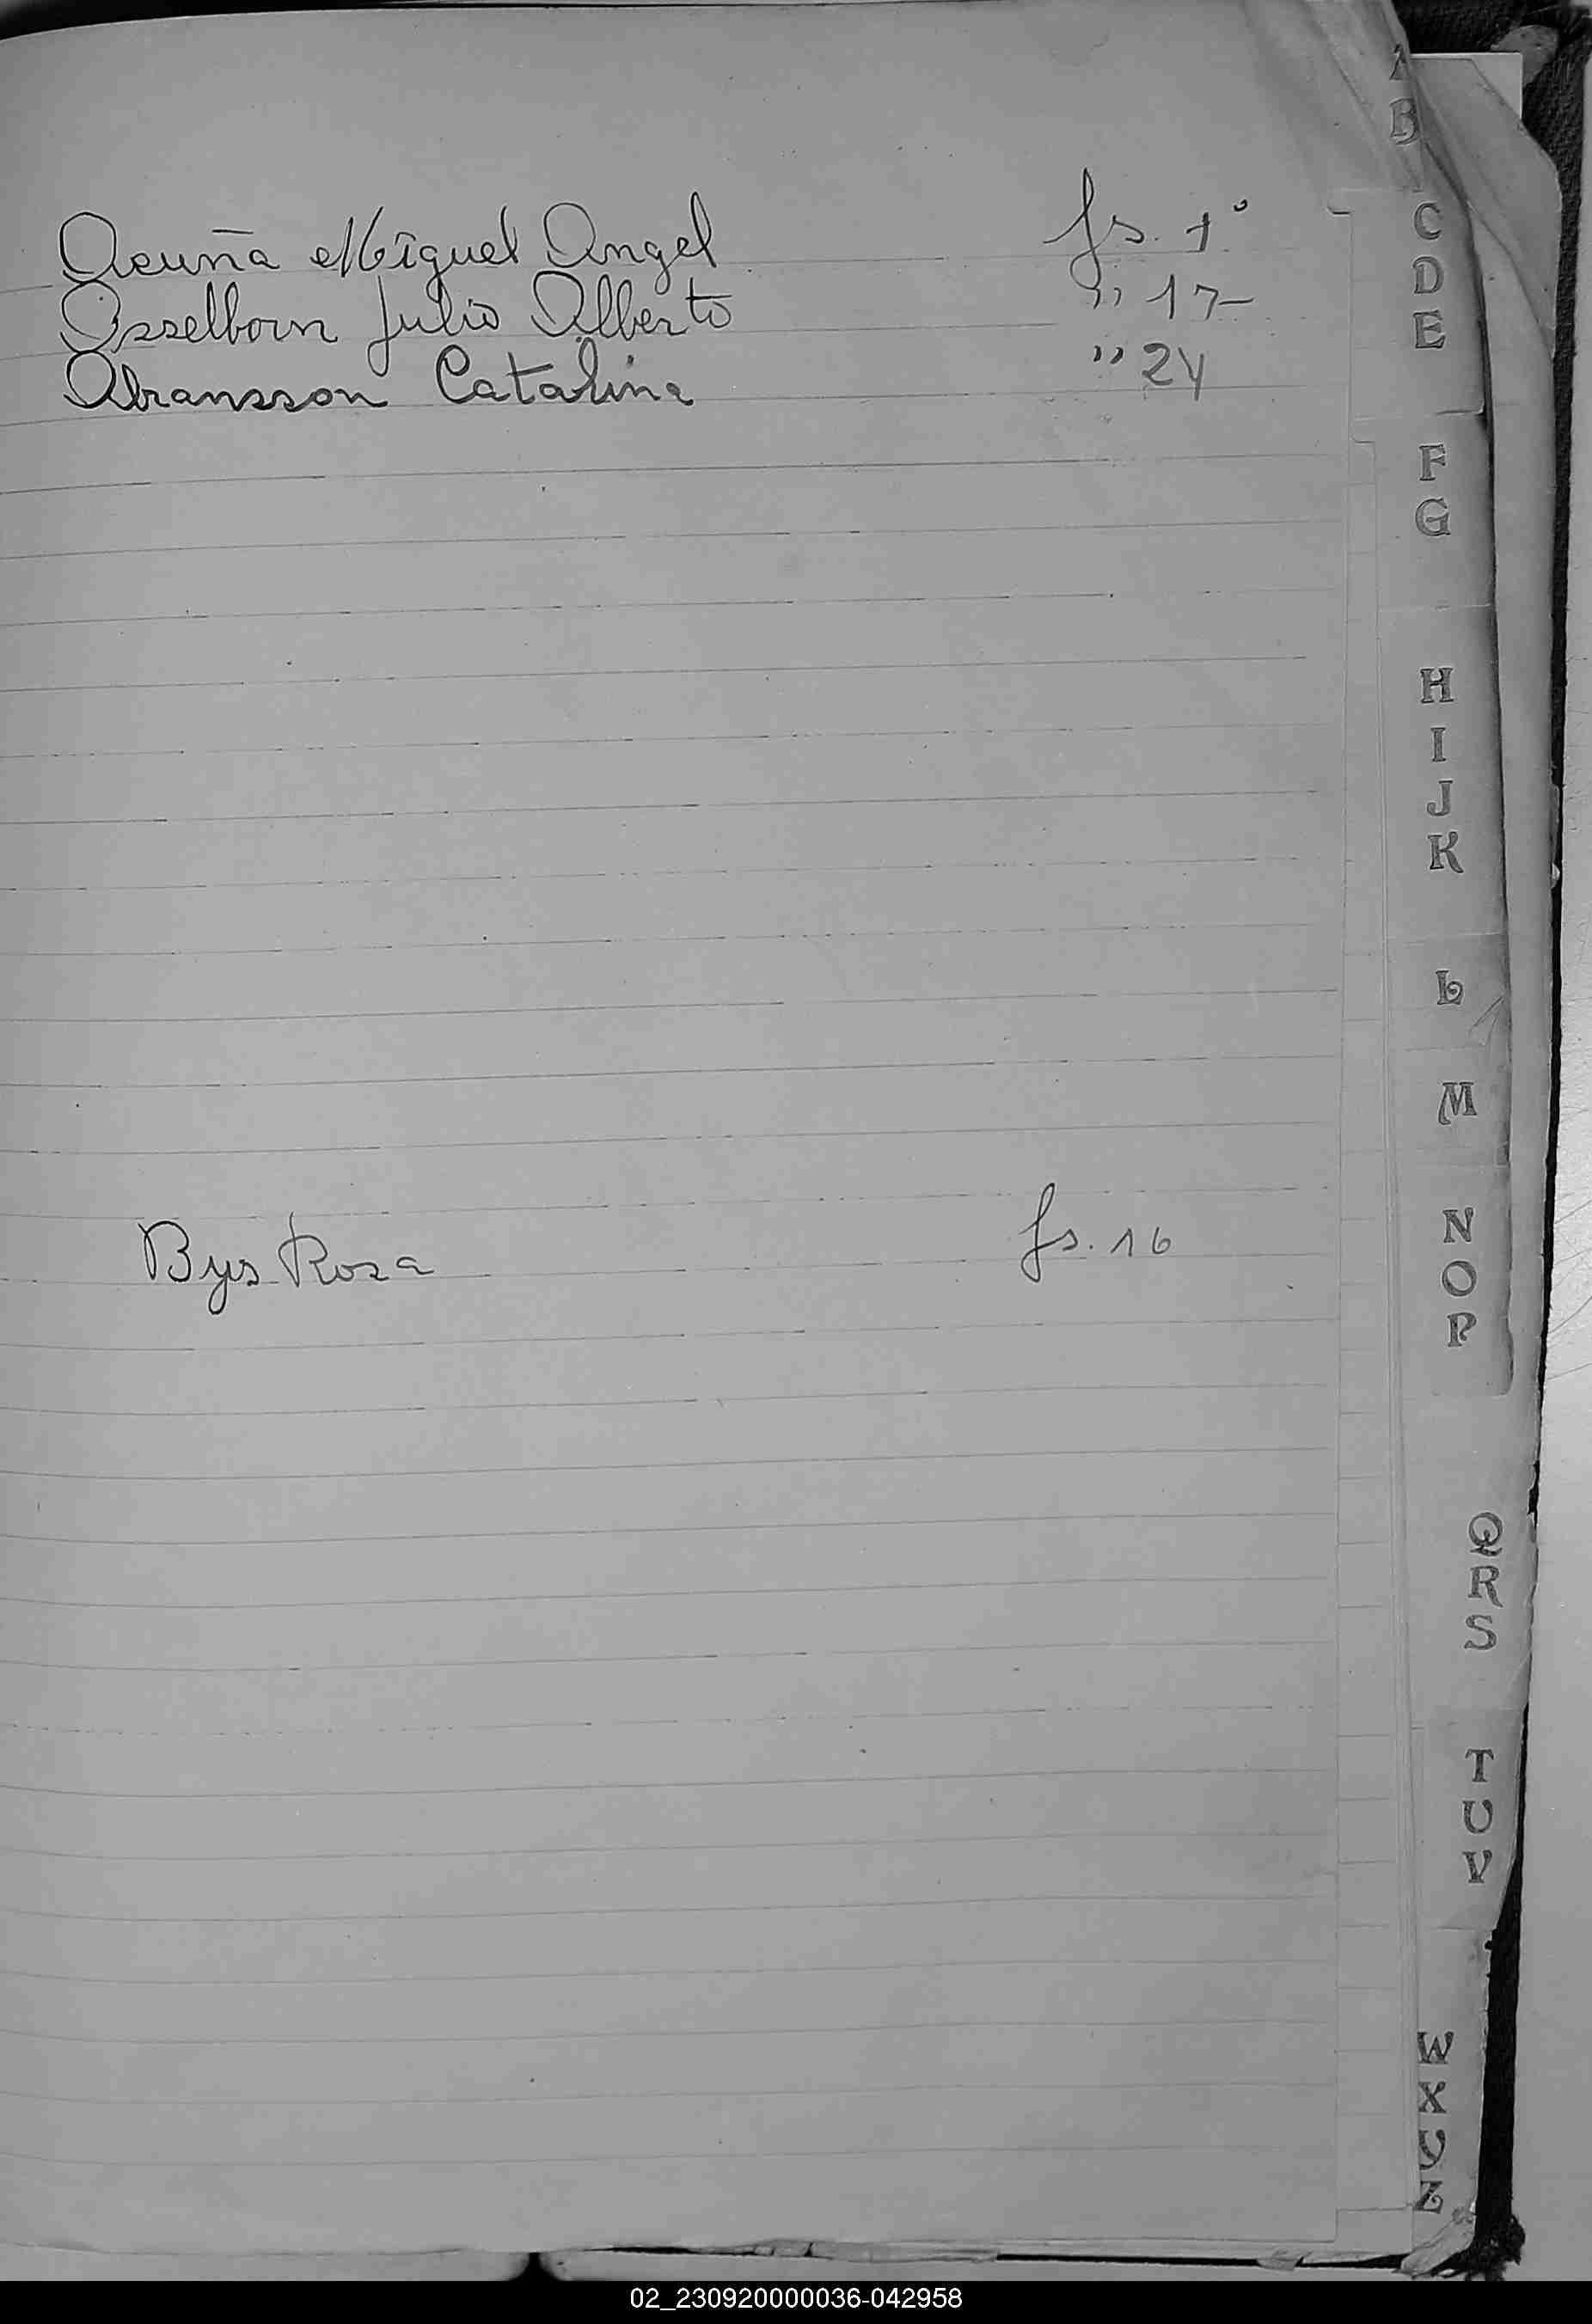 Acuña Miguel Angel fs. 1°
Asselborn Julio Alberto " 17-
Abransson Catalina " 24
Bys Rosa fs. 16
A
B
C
D
E
F
G
H
I
J
K
L
M
N
O
P
Q
R
S
T
U
V
W
X
Y
Z
02_230920000036-042958